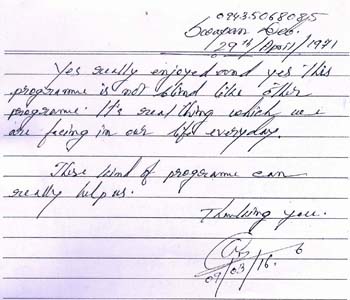 09435068085
Swapan Deb.
29th/April/1971
Yes really enjoyed and yes this
programme is not blind like other
programme. It's real thing which we
are facing in our life everyday.
These kind of programme can
really help us.
Thanking you.
09/03/16.